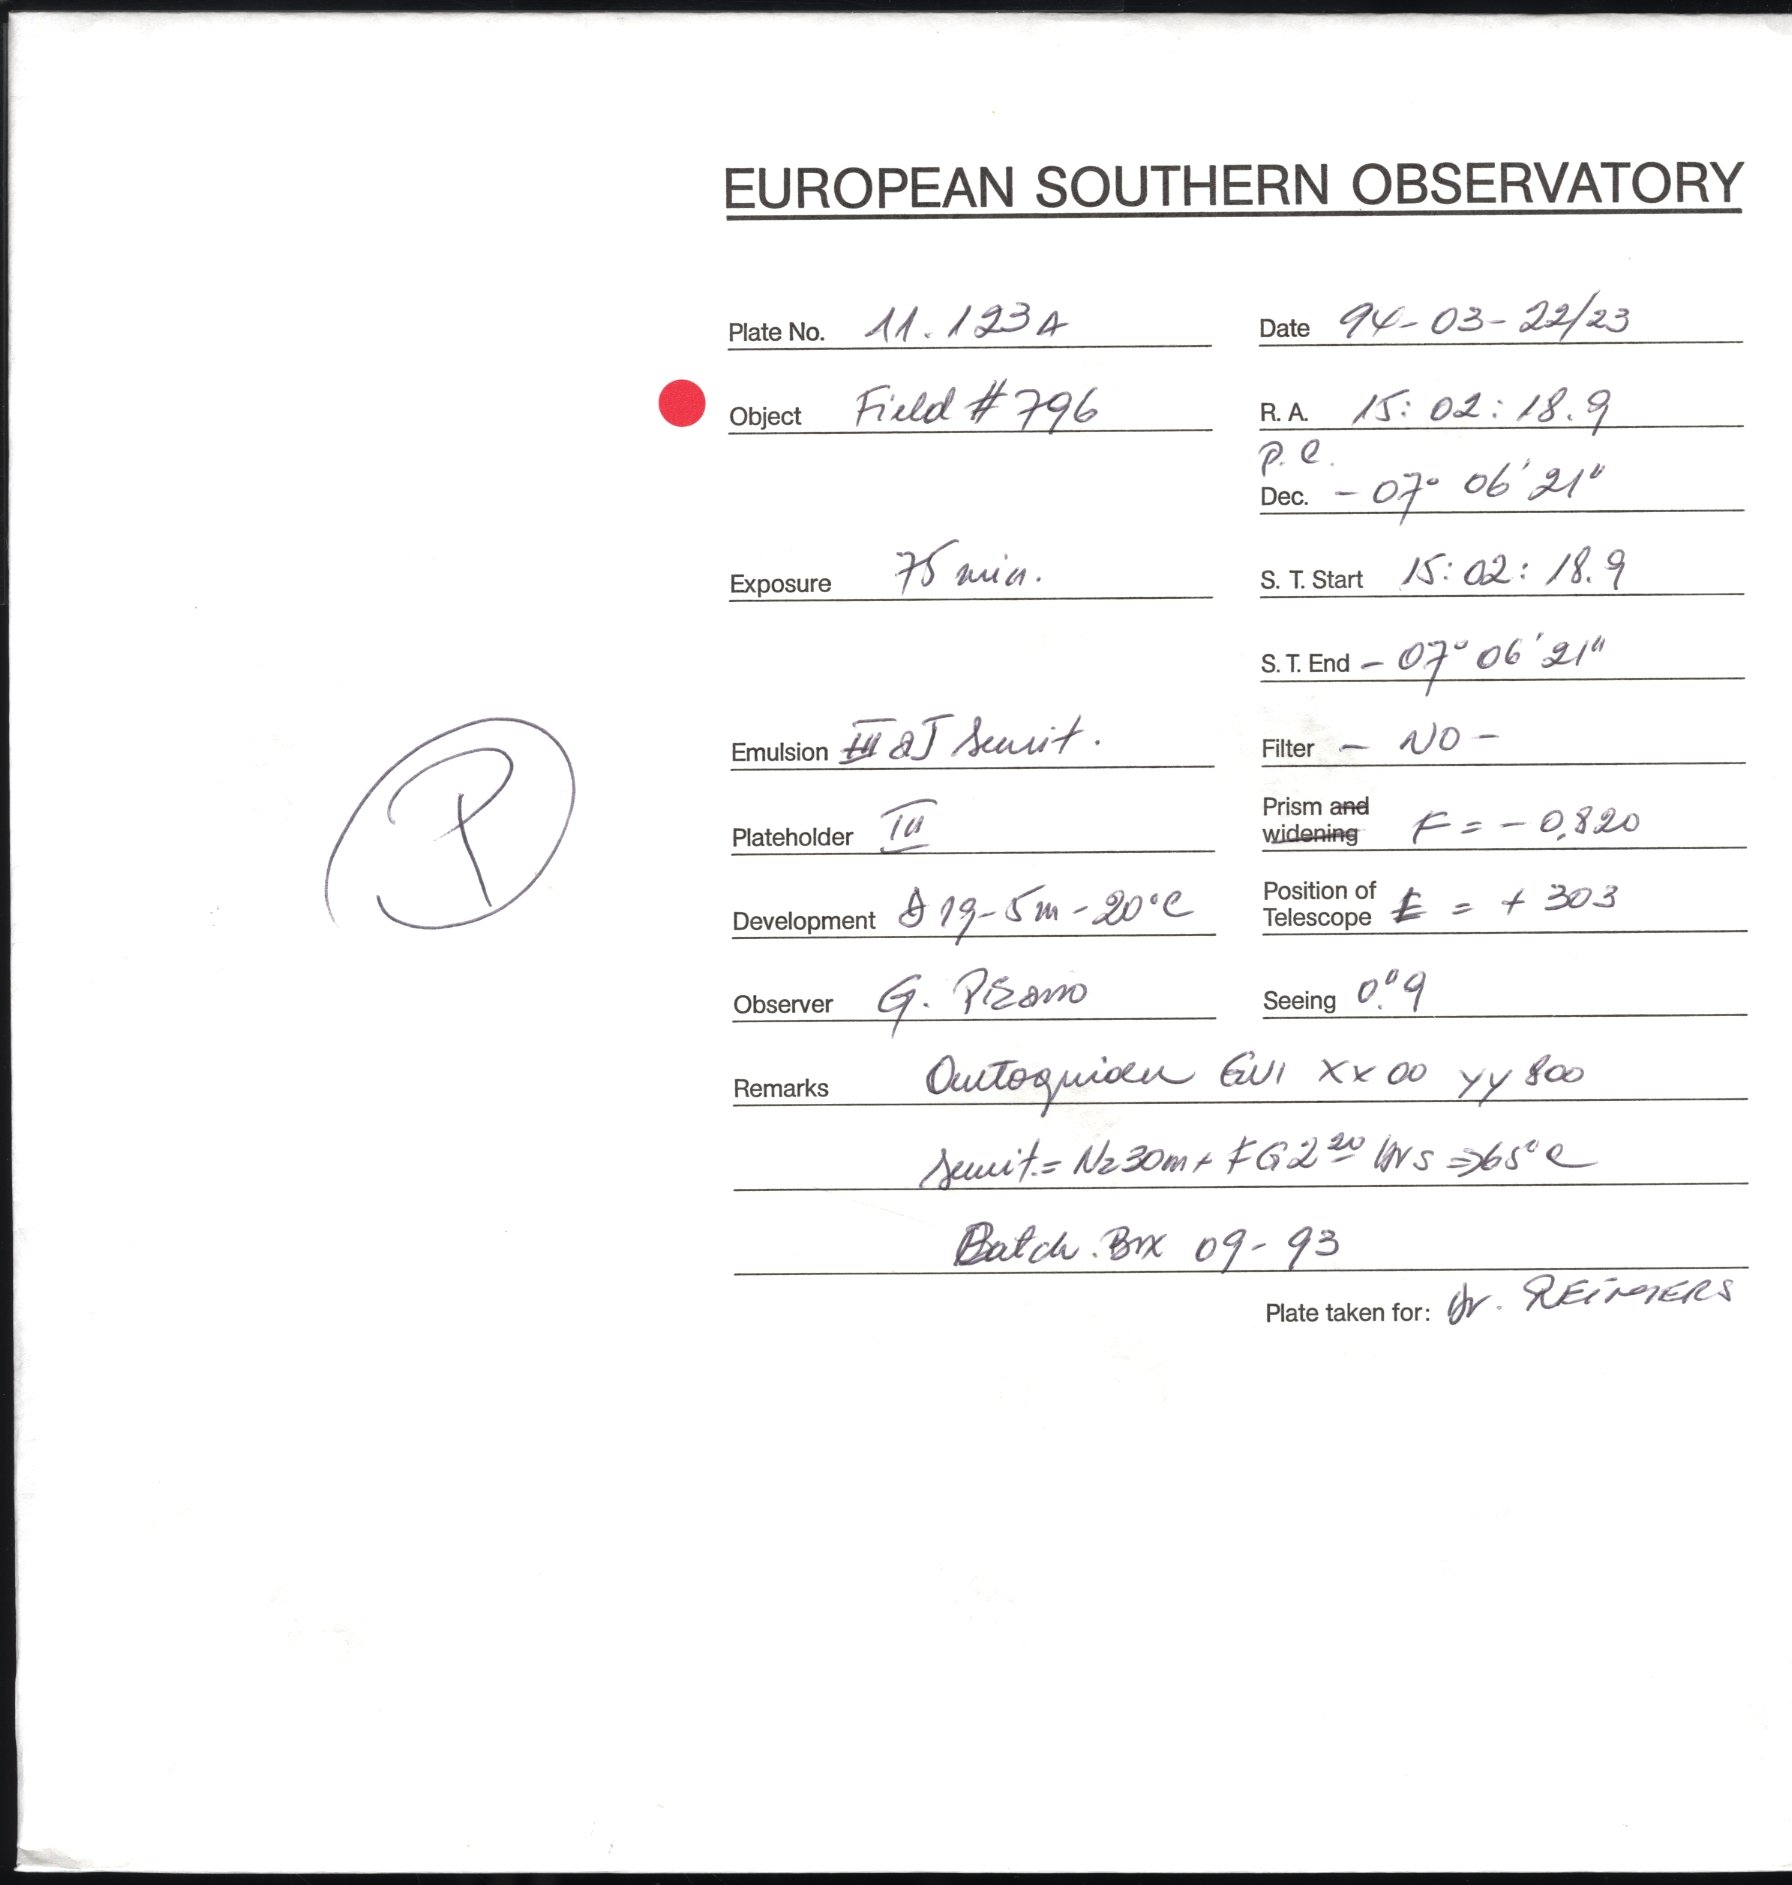 EUROPEAN SOUTHERN OBSERVATORY
Plate No. 11.123A Date 94-03-22/23
Object Field #796 R. A. 15:02:18.9
P.C.
Dec. -07° 06' 21"
Exposure 75 min. S. T. Start 15:02:18.9
S. T. End -07° 06' 21"
Emulsion III aJ Sensit. Filter - NO -
Plateholder III Prism and widening F = -0,820
Development D19-5m-20°C Position of Telescope E = + 303
Observer G. Pizarro Seeing 0."9
Remarks Autoguider GUI XX 00 YY 800
Sensit.= N2 30m + FG 2 20 hrs => 65°C
Batch. Box 09-93
Plate taken for: Dr. REIMERS
P